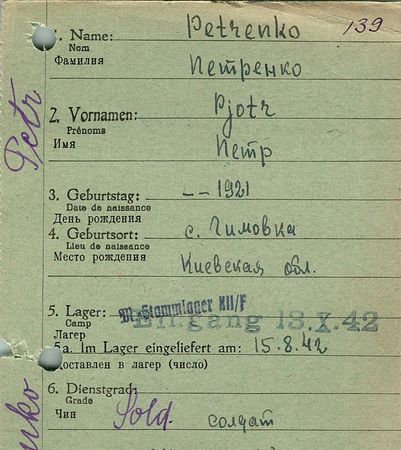 1. Name: Petrenko 139
Nom
Фамилия Петренко
2. Vornamen: Pjotr
Prénoms
Имя Петр
3. Geburtstag: – – 1921
Date de naissance
День рождения
4. Geburtsort: с. Чимовка
Lieu de naissance
Место рождения Киевская обл.
5. Lager: M.-Stammlager XII/F
Camp Eingang 13.X.42
Лагерь
5a. Im Lager eingeliefert am: 15.8.42
Доставлен в лагерь (число)
6. Dienstgrad:
Grade
Чин Sold. солдат
Petr